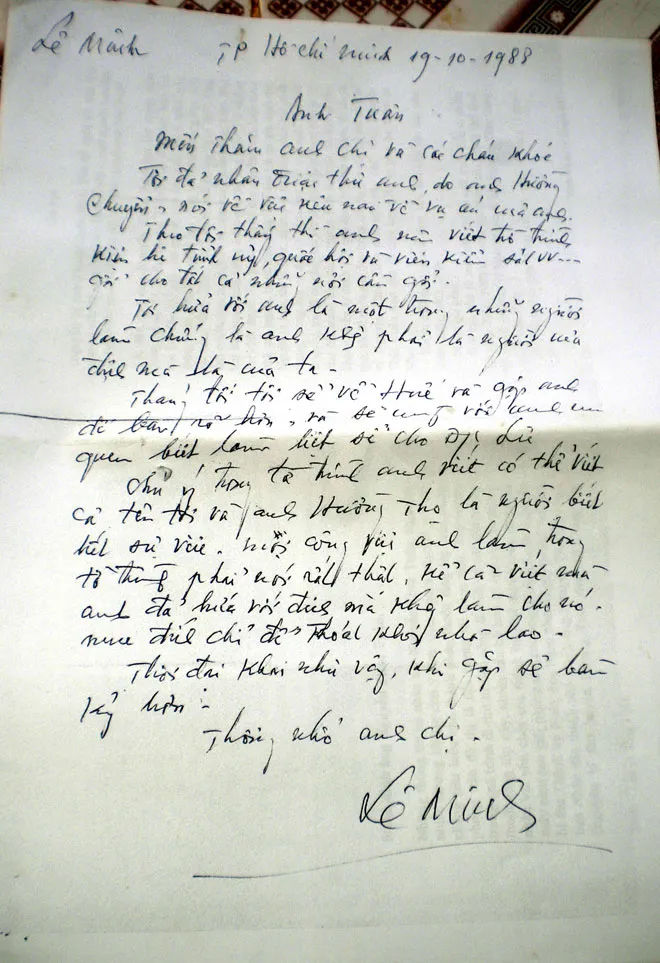 Lê Minh TP Hồ-chí minh 19-10-1988
Anh Tuân
mến thăm anh chị và các cháu khỏe
Tôi đã nhận được thư anh, do anh Hường
chuyển, nói về việc kêu nan về vụ án của anh.
Theo tôi thấy thì anh nên viết tờ trình
kiến nghị tỉnh ủy, quốc hội và viện kiểm sát vv...
gởi cho tất cả những nơi cần gởi.
Tôi hứa với anh là một trong những người
làm chứng là anh không phải là người của
địch mà là của ta -
Tháng tới tôi sẽ về Huế và gặp anh
để bàn rõ hơn, và sẽ cùng với anh em
quen biết làm hết sẽ cho
chú ý trong tờ trình anh viết có thể viết
cả tên tôi và anh Hường Thọ là người biết
hết sự việc. mọi công việc anh làm trong
tờ trình phải nói rất thật, kể cả việc mà
anh đã hứa với địch mà không làm cho nó.
mục đích chỉ để thoát khỏi nhà lao -
Thôi đại khái như vậy, khi gặp sẽ bàn
kỹ hơn -
Thăm anh chị -
Lê Minh